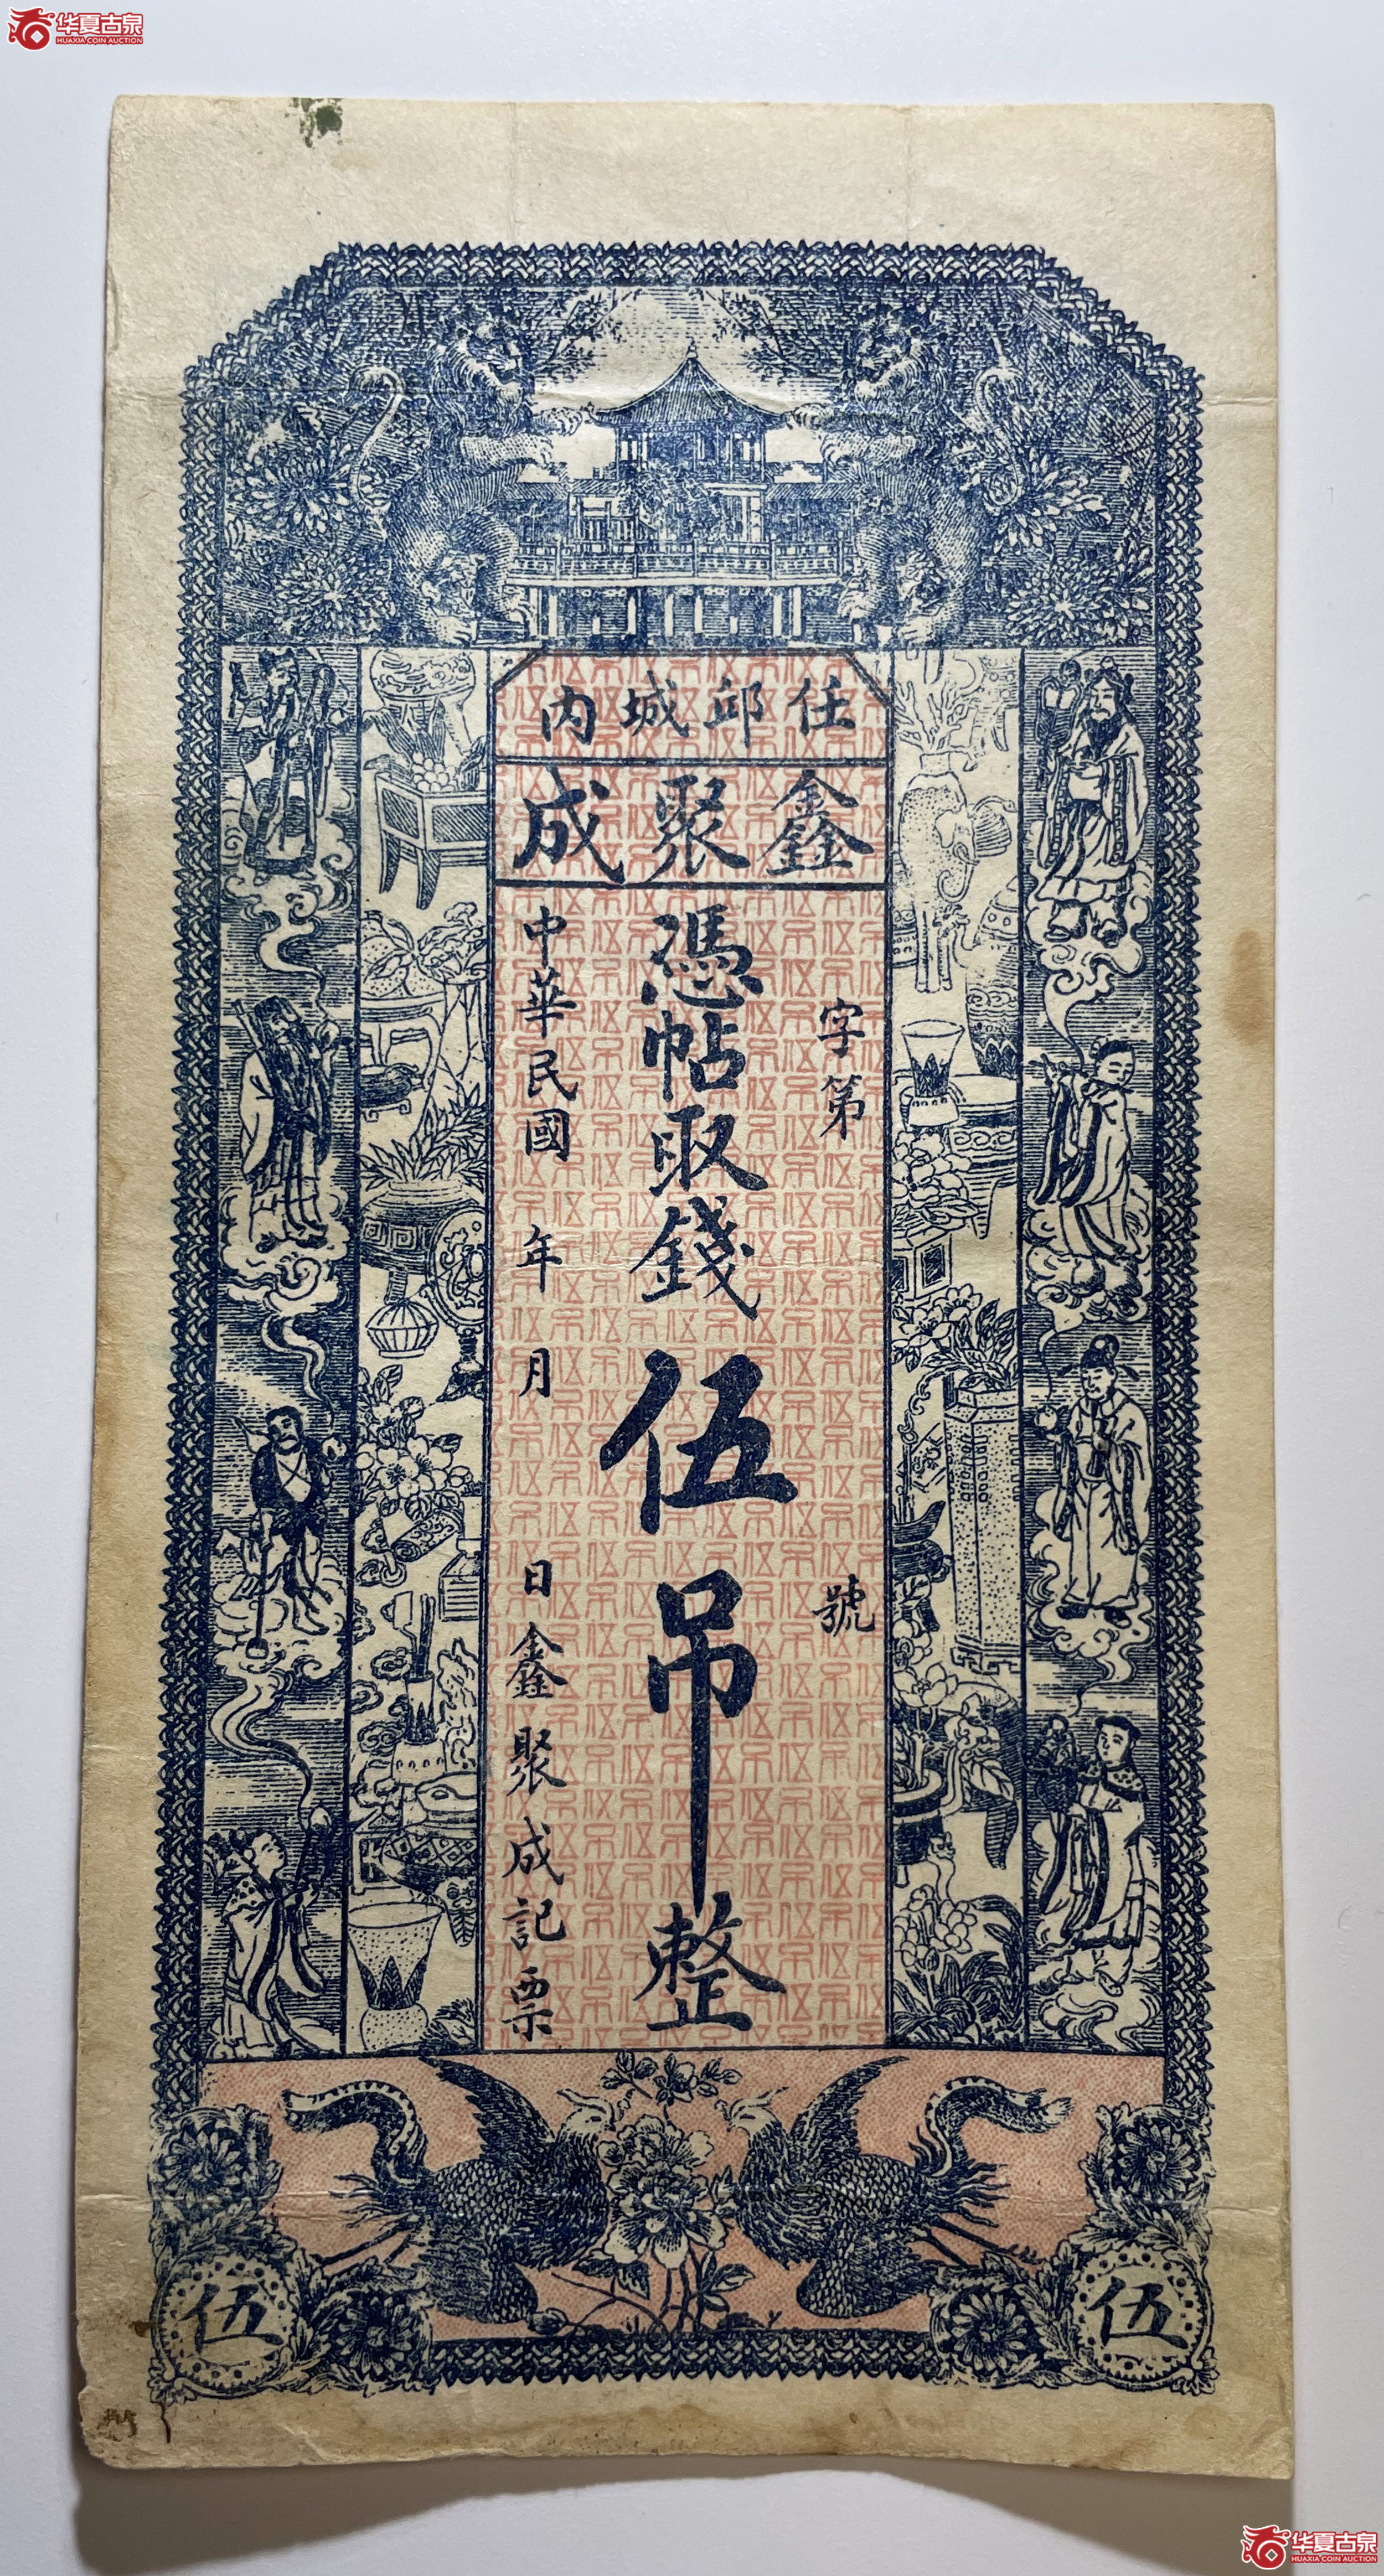 华夏古泉
HUAXIA COIN AUCTION
任邱城内
鑫聚成
字第 號
憑帖取錢伍吊整
中華民國 年 月 日鑫聚成記票
伍
伍
华夏古泉
HUAXIA COIN AUCTION